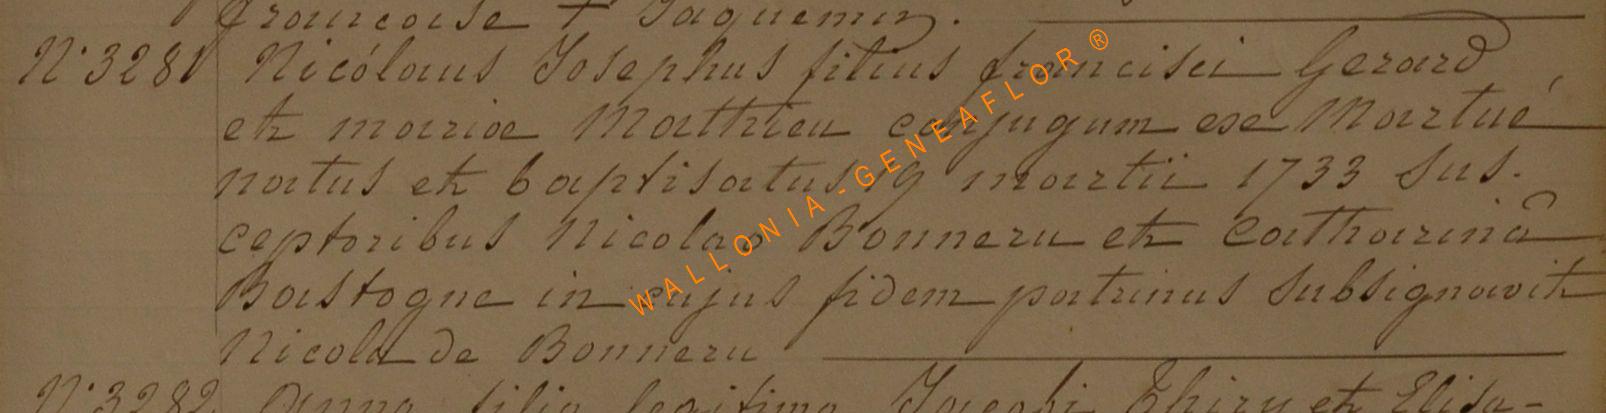 francoise + Jaquemin.
N° 3281 Nicólaus Josephus filius francisci Gerard
et mariæ Mathieu conjugum ex Martué
natus et baptisatus 19 martii 1733 Sus-
ceptoribus Nicolao Bonneru et Catharinâ
Bastogne in cujus fidem patrinus Subsignavit
Nicola de Bonneru
N° 3282 Anna filia legitima Jacobi Thiry et Elisa-
WALLONIA-GENEAFLOR®